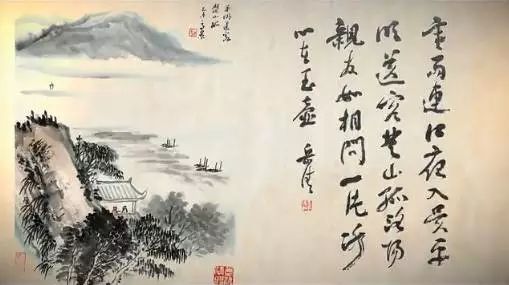 寒雨連江夜入吳平
明送客楚山孤洛陽
親友如相問一片冰
心在玉壺
平明送客
楚山孤